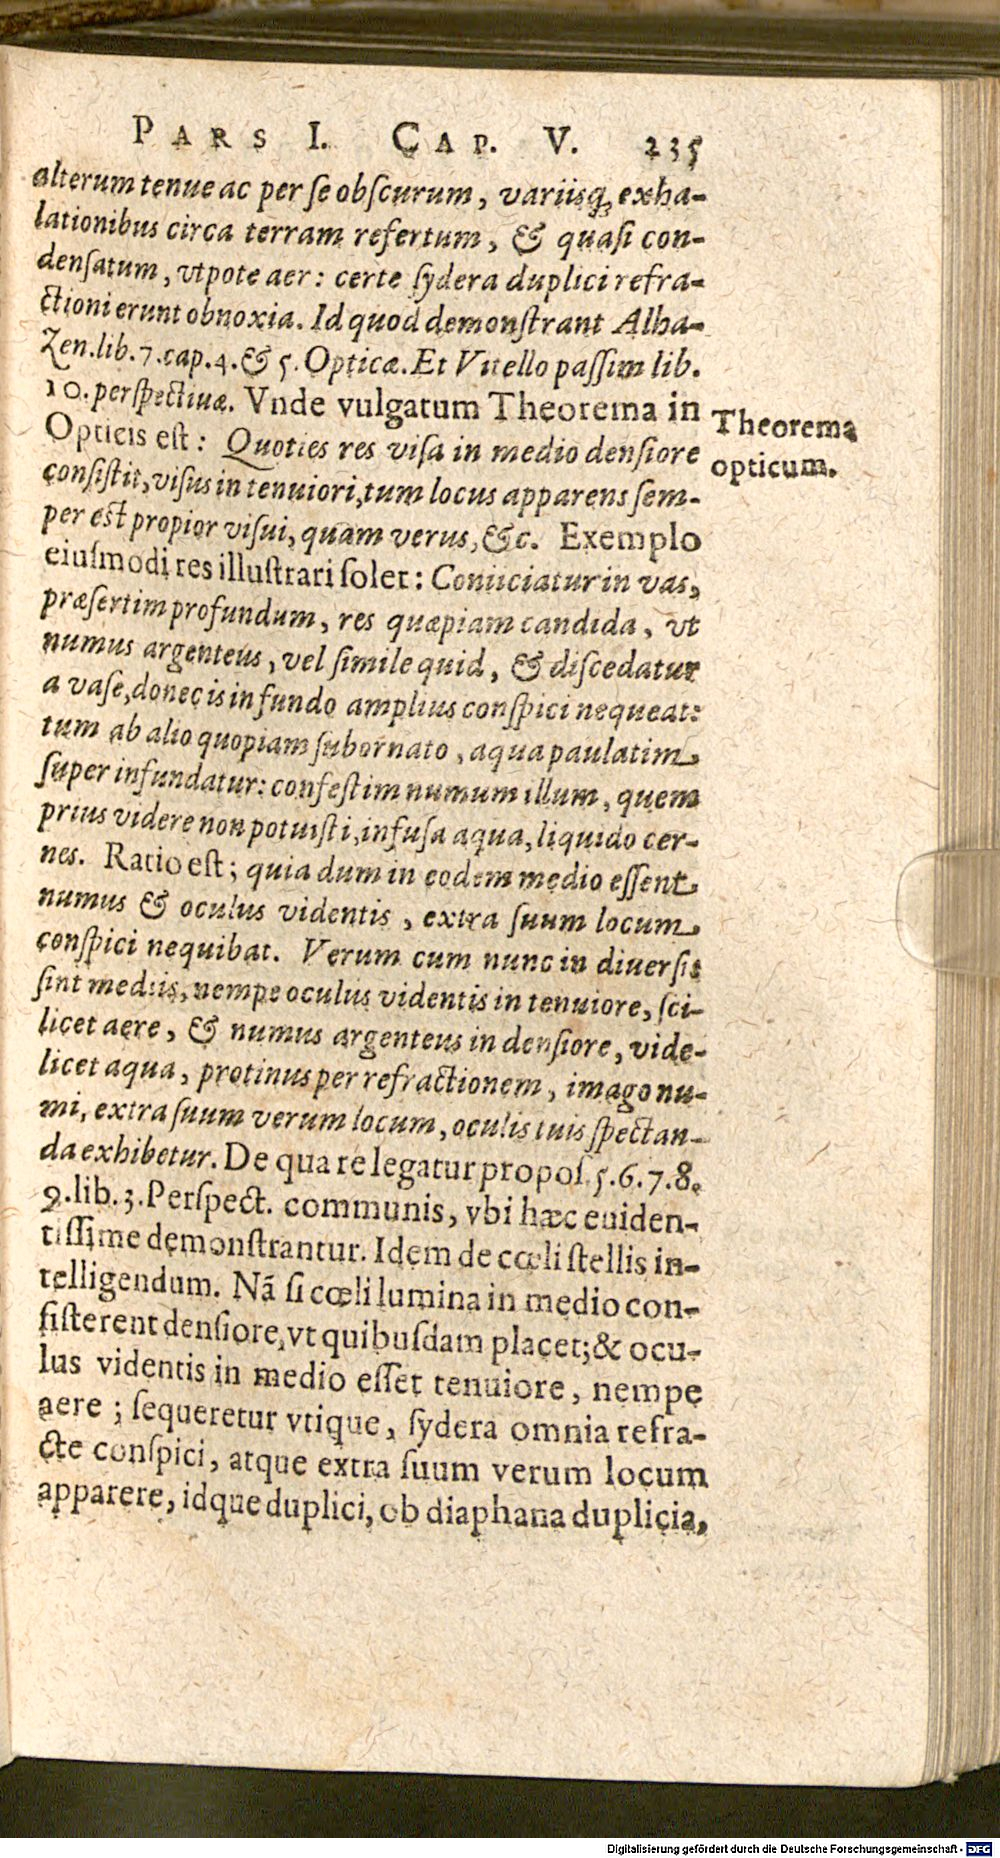 PARS I. CAP. V. 235
alterum tenue ac per ſe obſcurum, variisq́; exha-
lationibus circa terram refertum, & quaſi con-
denſatum, vtpote aer: certe ſydera duplici refra-
ctioni erunt obnoxia. Id quod demonſtrant Alha-
Zen. lib. 7. cap. 4. & 5. Opticæ. Et Vitello paſſim lib.
10. perſpectiuæ. Vnde vulgatum Theorema in
Opticis eſt: Quoties res viſa in medio denſiore
conſiſtit, viſus in tenuiori, tum locus apparens ſem-
per eſt propior viſui, quam verus, &c. Exemplo
eiuſmodi res illuſtrari ſolet: Coniiciatur in vas,
præſertim profundum, res quæpiam candida, vt
numus argenteus, vel ſimile quid, & diſcedatur
a vaſe, donec is in fundo amplius conſpici nequeat:
tum ab alio quopiam ſubornato, aqua paulatim
ſuper infundatur: confeſtim numum illum, quem
prius videre non potuiſti, infuſa aqua, liquido cer-
nes. Ratio eſt; quia dum in eodem medio eſſent
numus & oculus videntis, extra ſuum locum
conſpici nequibat. Verum cum nunc in diuerſis
ſint mediis, nempe oculus videntis in tenuiore, ſci-
licet aere, & numus argenteus in denſiore, vide-
licet aqua, protinus per refractionem, imago nu-
mi, extra ſuum verum locum, oculis tuis ſpectan-
da exhibetur. De qua re legatur propoſ. 5. 6. 7. 8.
9. lib. 3. Perſpect. communis, vbi hæc euiden-
tiſſime demonſtrantur. Idem de cœli ſtellis in-
telligendum. Nã ſi cœli lumina in medio con-
ſiſterent denſiore, vt quibuſdam placet; & ocu-
lus videntis in medio eſſet tenuiore, nempe
aere; ſequeretur vtique, ſydera omnia refra-
cte conſpici, atque extra ſuum verum locum
apparere, idque duplici, ob diaphana duplicia,
Theorema
opticum.
Digitalisierung gefördert durch die Deutsche Forschungsgemeinschaft - DFG